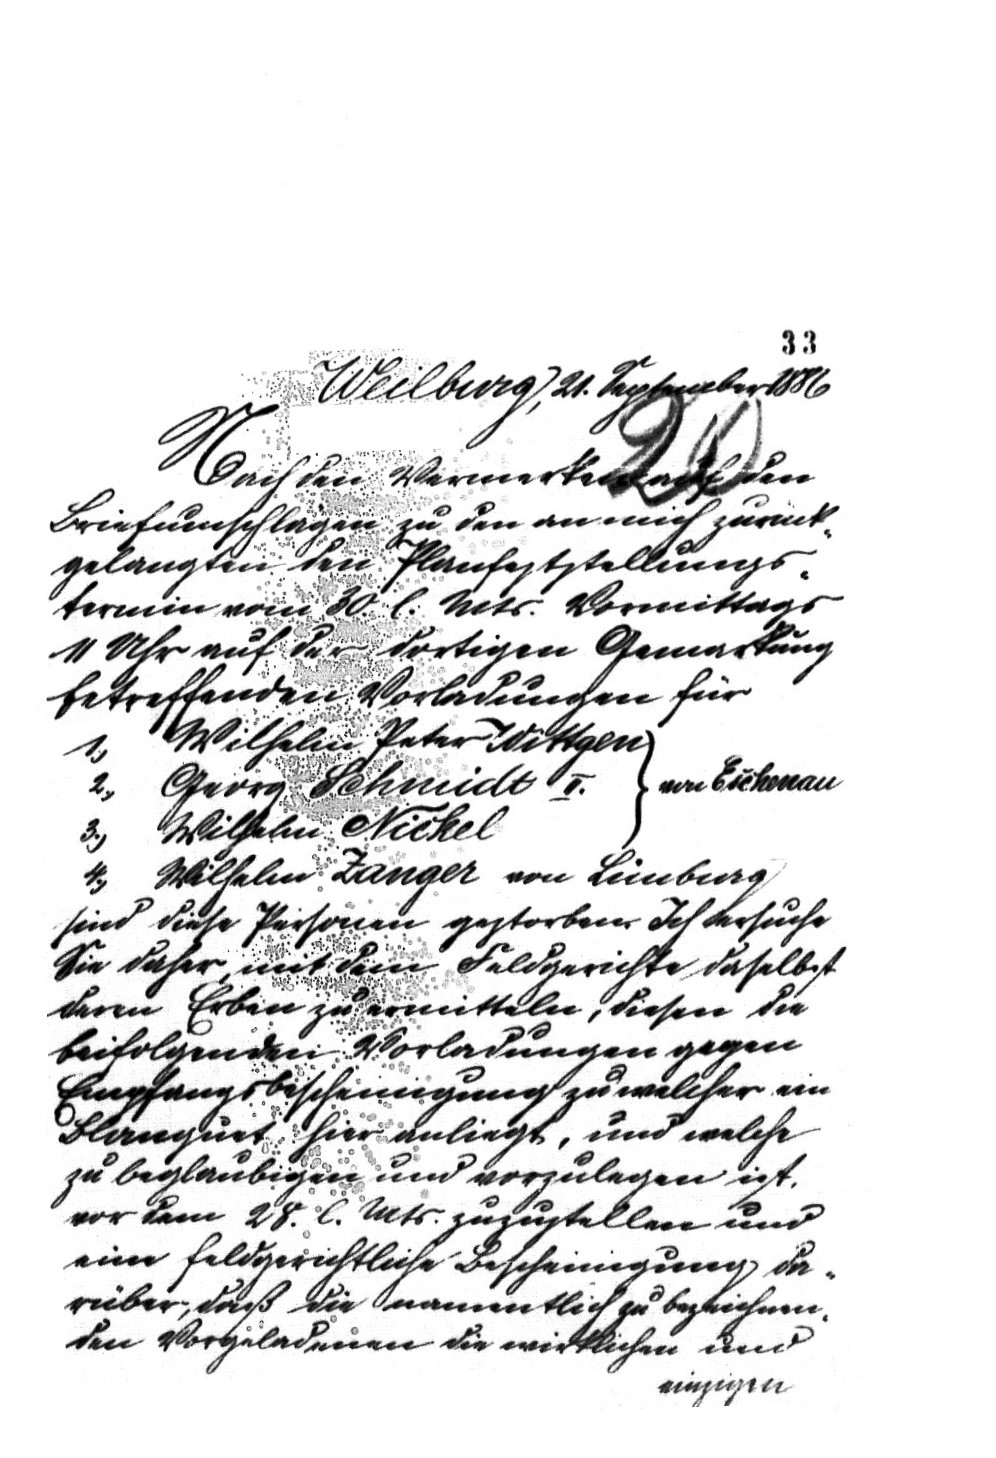 33
Weilburg, 21. September 1886
20
Nach den Vermerken auf den
Briefumschlägen zu den an mich zurück-
gelangten den Planfeststellungs-
termin vom 30. l. Mts. Vormittags
11 Uhr auf der dortigen Gemarkung
betreffenden Vorladungen für
1., Wilhelm Peter Wittgen
2., Georg Schmidt II. von Eichenau
3., Wilhelm Nickel
4., Wilhelm Zanger von Limburg
sind diese Personen gestorben. Ich ersuche
Sie daher, mit dem Feldgerichte daselbst
deren Erben zu ermitteln, diesen die
beifolgenden Vorladungen gegen
Empfangsbescheinigung zu welcher ein
Blanquet hier anliegt, und welche
zu beglaubigen und vorzulegen ist,
vor dem 28. l. Mts. zuzustellen und
eine feldgerichtliche Bescheinigung da-
rüber, daß die namentlich zu bezeichnen-
den Vorgeladenen die wirklichen und
einzigen